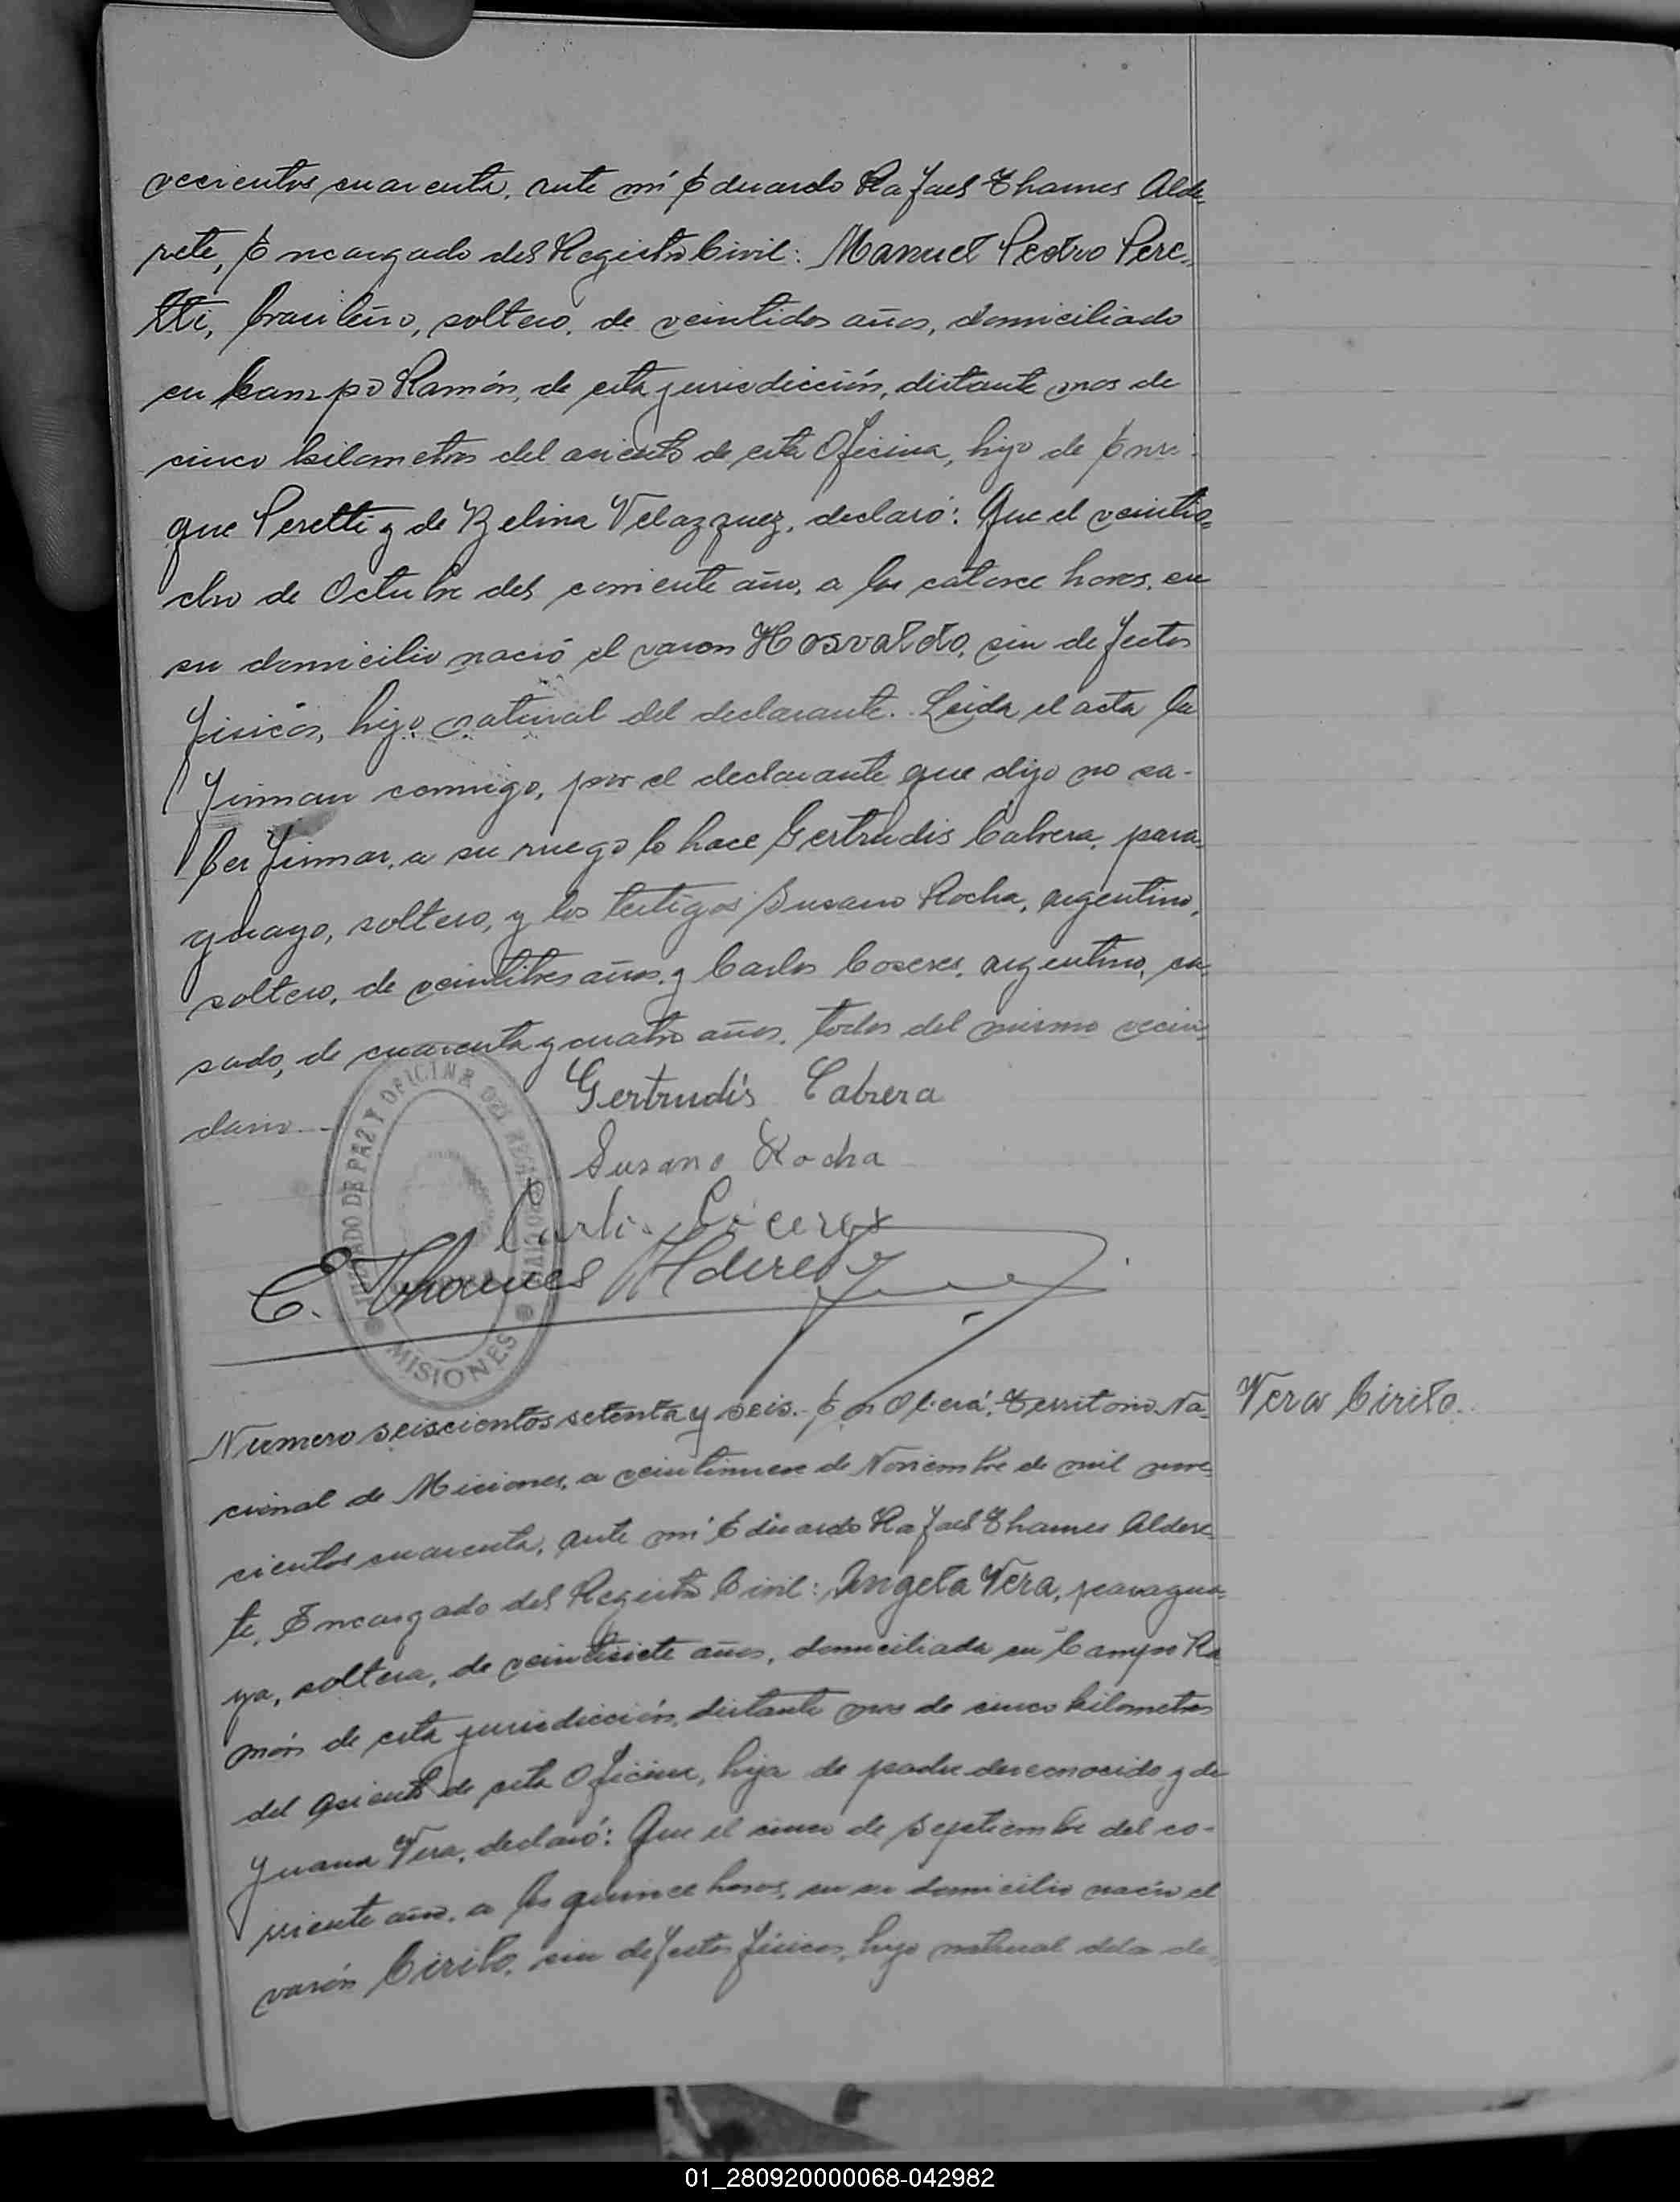 vecientos cuarenta, ante mí Eduardo Rafael Thames Alde-
rete, Encargado del Registro Civil: Manuel Pedro Pere-
tti, brasileño, soltero, de veintidos años, domiciliado
en Campo Ramón, de esta jurisdicción, distante mas de
cinco kilometros del asiento de esta Oficina, hijo de Enri-
que Peretti y de Zelina Velazquez, declaró: Que el veintio-
cho de Octubre del corriente año, a las catorce horas, en
su domicilio nació el varon Hosvaldo, sin defectos
fisicos, hijo natural del declarante. Leida el acta la
firman conmigo, por el declarante que dijo no sa-
ber firmar, a su ruego lo hace Gertrudis Cabrera, para-
guayo, soltero, y los testigos Susano Rocha, argentino,
soltero, de veintitres años, y Carlos Coseres, argentino, ca-
sado, de cuarenta y cuatro años, todos del mismo vecin-
dario.-
JUZGADO DE PAZ Y OFICINA DEL REGISTRO CIVIL
MISIONES
Gertrudis Cabrera
Susano Rocha
E. Thames Alderete
Numero seiscientos setenta y seis. En Oberá, Territorio Na-
Vera Cirilo.
cional de Misiones, a veintinueve de Noviembre de mil nove-
cientos cuarenta, ante mí Eduardo Rafael Thames Aldere-
te, Encargado del Registro Civil: Angela Vera, paragua-
ya, soltera, de veintisiete años, domiciliada en Campo Ra-
món de esta jurisdicción, distante mas de cinco kilometros
del asiento de esta Oficina, hija de padre desconocido y de
Juana Vera, declaró: Que el cinco de Septiembre del co-
rriente año, a las quince horas, en su domicilio nació el
varón Cirilo, sin defectos fisicos, hijo natural dela de-